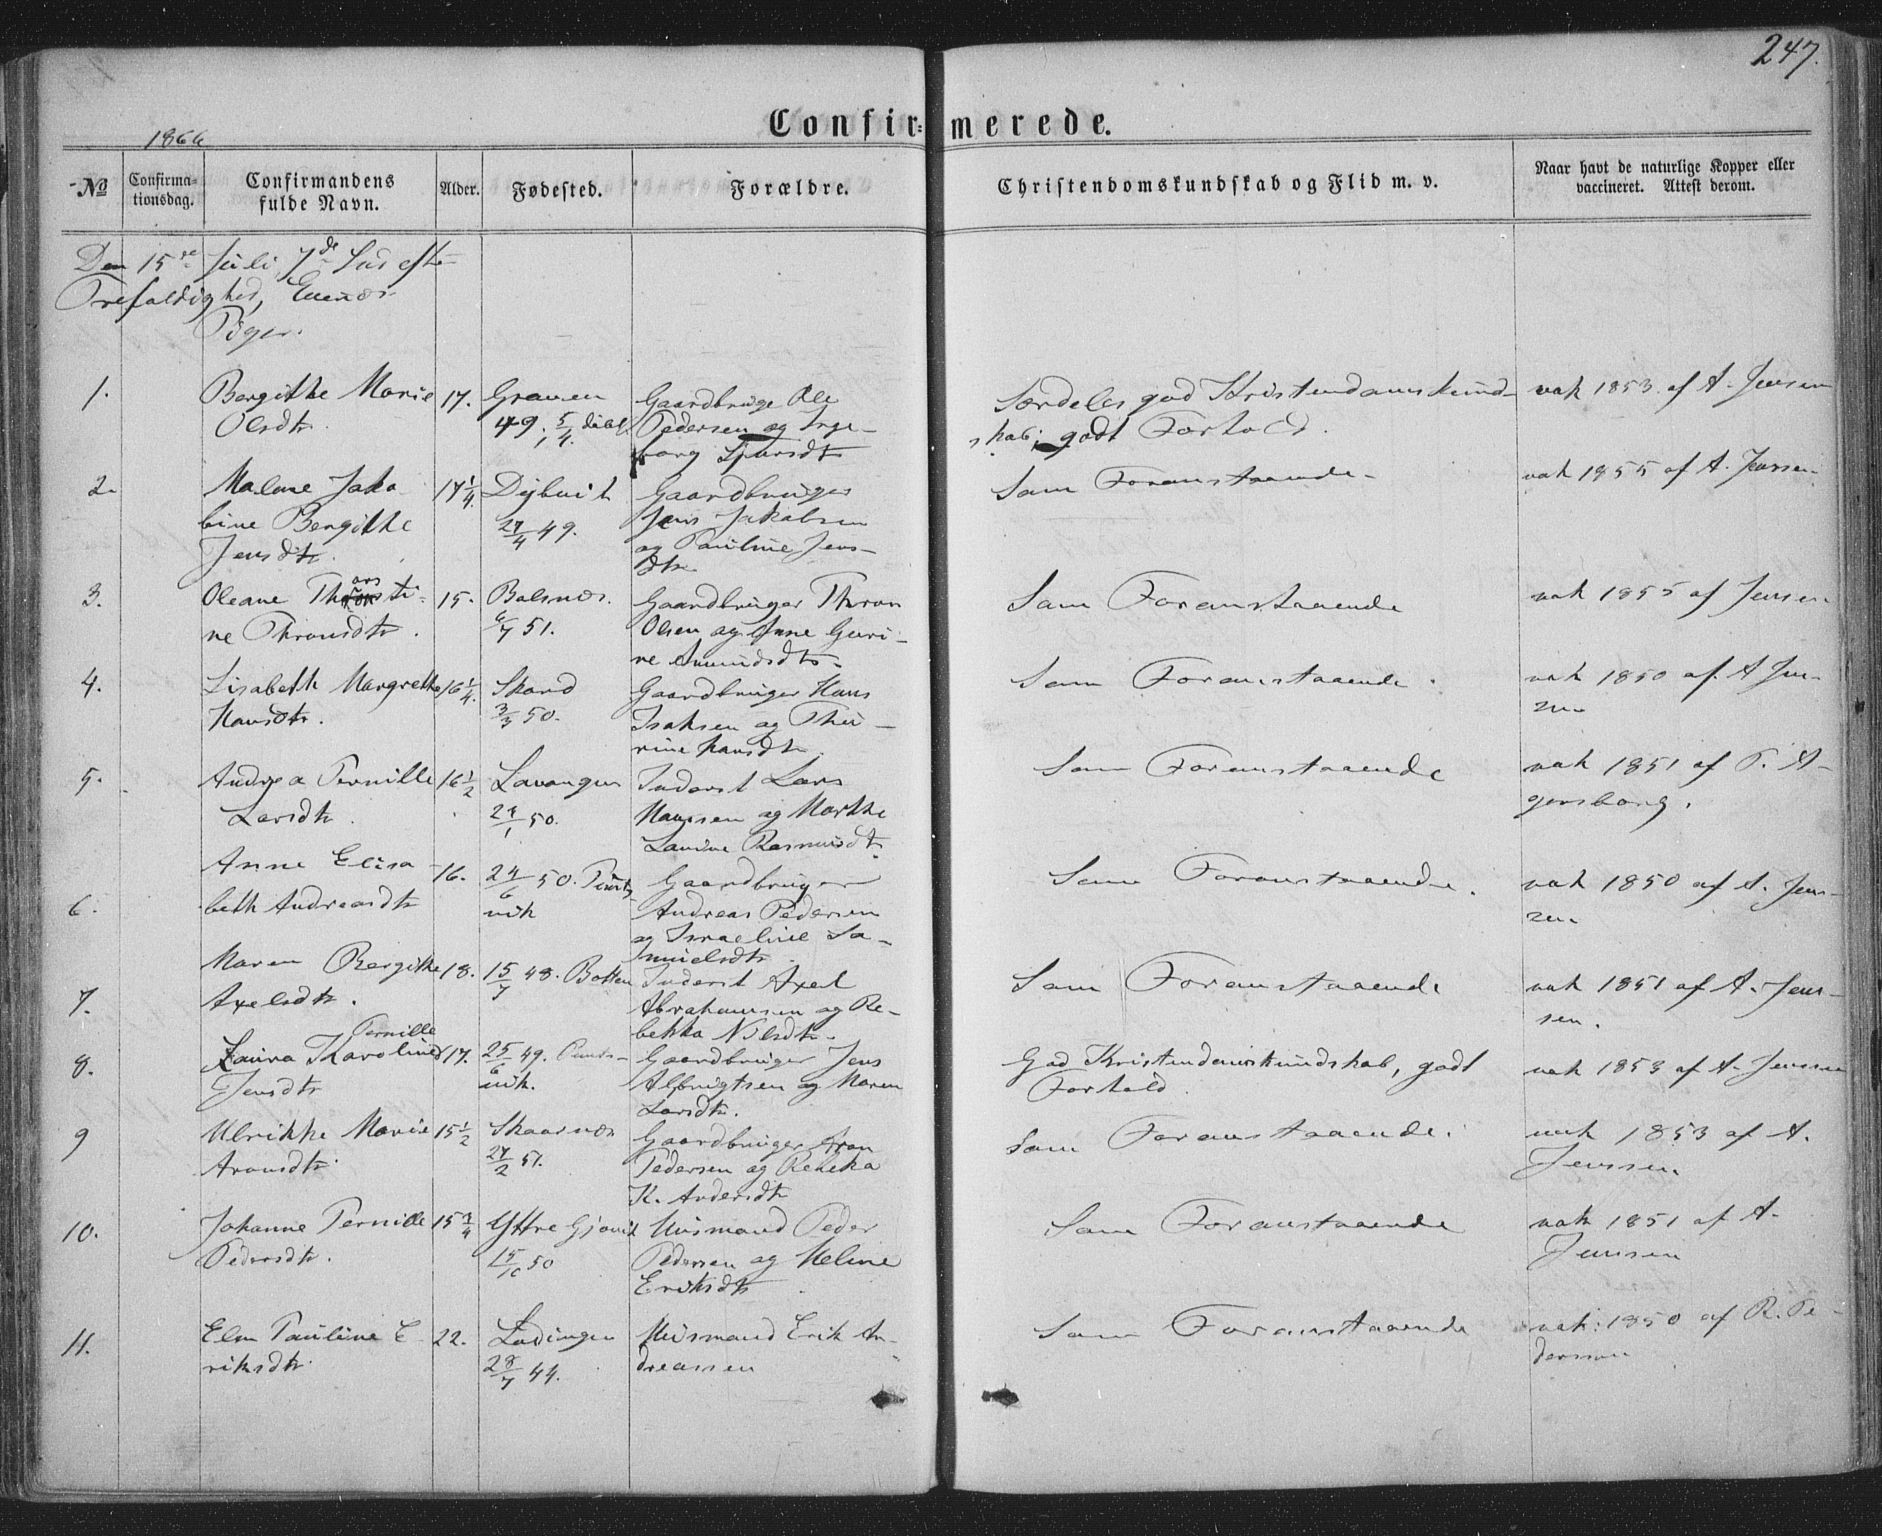 247.
Confirmerede.
1866
No
Confirmationsdag.
Confirmandens fulde Navn.
Alder.
Fødested.
Forældre.
Christendomskundskab og Flid m. v.
Naar havt de naturlige Kopper eller vaccineret. Attest derom.
Den 15de Juli, 7de Søn efter
Trefoldighed, Evenæs
Piger.
1. Bergithe Marie 17. Gaardbruge Ole Særdeles god Kristendomskund- vak 1853 af A. Jensen
Olsdtr. 49. 5/4 Pedersen og Inge- skab; godt Forhold.
borg Sjursdtr
2. Jako- 17 1/4 Dybvik Gaardbruger Som Foranstaaende. vak 1855 af A. Jenssen.
bine Bergithe 27/4 49. Jens Jakobsen
Jensdtr. og Pauline Jens-
dtr.
3. Oleane 15. Balsnæs. Gaardbruger Thron Som Foranstaaende vak 1855 af Jensen
ne Thronsdtr. 6/7 51. Olsen og Anne Guri-
ne Amundsdtr.
4. Lisabeth Margrethe 16 1/4. Skord Gaardbruger Hans Som Foranstaaende. vak 1850 af A Jen-
Hansdtr. 3/3 50. Isaksen og Thu- zen
rine Hansdtr.
5. Andrea Pernille 16 1/2 Lavangen Inderst Lars Som Foranstaaende vak 1851 af P. A-
Larsdtr. 1 50. Hansen og Marthe gersborg.
Lavine Rasmusdtr.
6. Anne Elisa- 16. 24/6 50. Gaardbruger Som Foranstaaende. vak 1850 af A. Jens-
beth Andreasdtr vik Andreas Pedersen zen.
og Israeline Sa-
muelsdtr.
7. Maren Bergithe 18. 15/7 48. Botten Inderst Axel Som Foranstaaende vak 1851 af A. Jens-
Axelsdtr. Abrahamsen og Re- sen.
bekka Nilsdtr.
Pernille
8. Laura Karoline 17. 25/6 49. Gaardbruger Jens God Kristendomskundskab, godt vak 1853 af A. Jenssen
Jensdtr vik. Albrigtsen og Maren Forhold.
Larsdtr.
9 Ulrikke Marie 15 1/2 Skaarnæs Gaardbruger Aron Som Foranstaaende. vak 1853 af A.
Aronsdtr. 27/2 51. Pedersen og Rebeka Jenssen
K. Andersdtr
10. Johanne Pernille 15 3/4 Yttre Gjøvik Huismand Peder Som Foranstaaende vak 1851 af A.
Pedersdtr. 15/10 50 Pedersen og Meline Jenssen
Eriksdtr.
11. Elen Pauline E- 22. Lødingen Huismand Erik An- Som Foranstaaende vak: 1850 af R. Pe-
riksdtr. 28/7 44. dreassen dersen